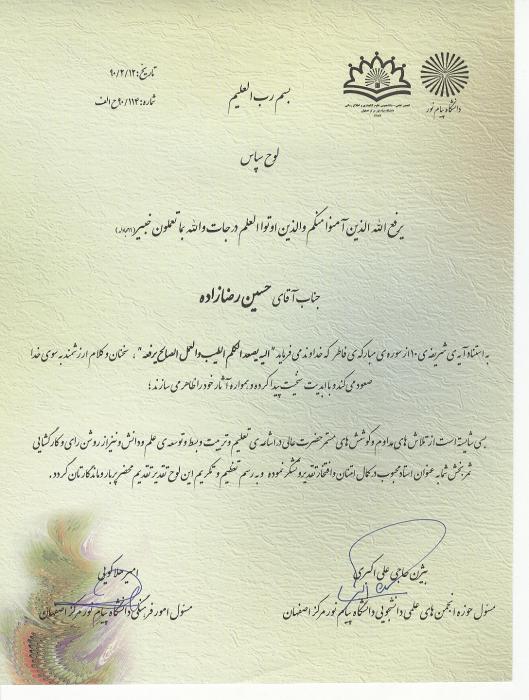 تاریخ: ۹۰/۲/۱۲
شماره: ۹۰/۱۱۴ح الف
دانشگاه پیام نور
بسم رب العلیم
لوح سپاس
یرفع الله الذین آمنوا منکم والذین اوتوا العلم درجات والله بما تعملون خبیر
جناب آقای حسین رضازاده
به استناد آیه ی شریفه ی ۱۰ از سوره ی مبارکه ی فاطر که خداوند می فرماید "الیه یصعد الکلم الطیب والعمل الصالح یرفعه" ، سخنان و کلام ارزشمند به سوی خدا
صعود می کند و با اهدیت سنخیت پیدا کرده و همواره آثار خود را ظاهر می سازند ؛
بسی شایسته است از تلاش های مداوم و کوشش های مستمر حضرت عالی در اشاعه ی تعلیم و تربیت و بسط و توسعه ی علم و دانش و نیز از روشن رای و کارگشایی
ثمربخش شما به عنوان استاد محبوب در کمال امتنان و افتخار تقدیر و تشکر نموده و به رسم تعظیم و تکریم این لوح تقدیر تقدیم محضر پربار و ماندگارتان گردد.
بیژن حاجی علی اکبری
مسئول حوزه انجمن های علمی دانشجویی دانشگاه پیام نور مرکز اصفهان
امیر هلاکویی
مسئول امور فرهنگی دانشگاه پیام نور مرکز اصفهان